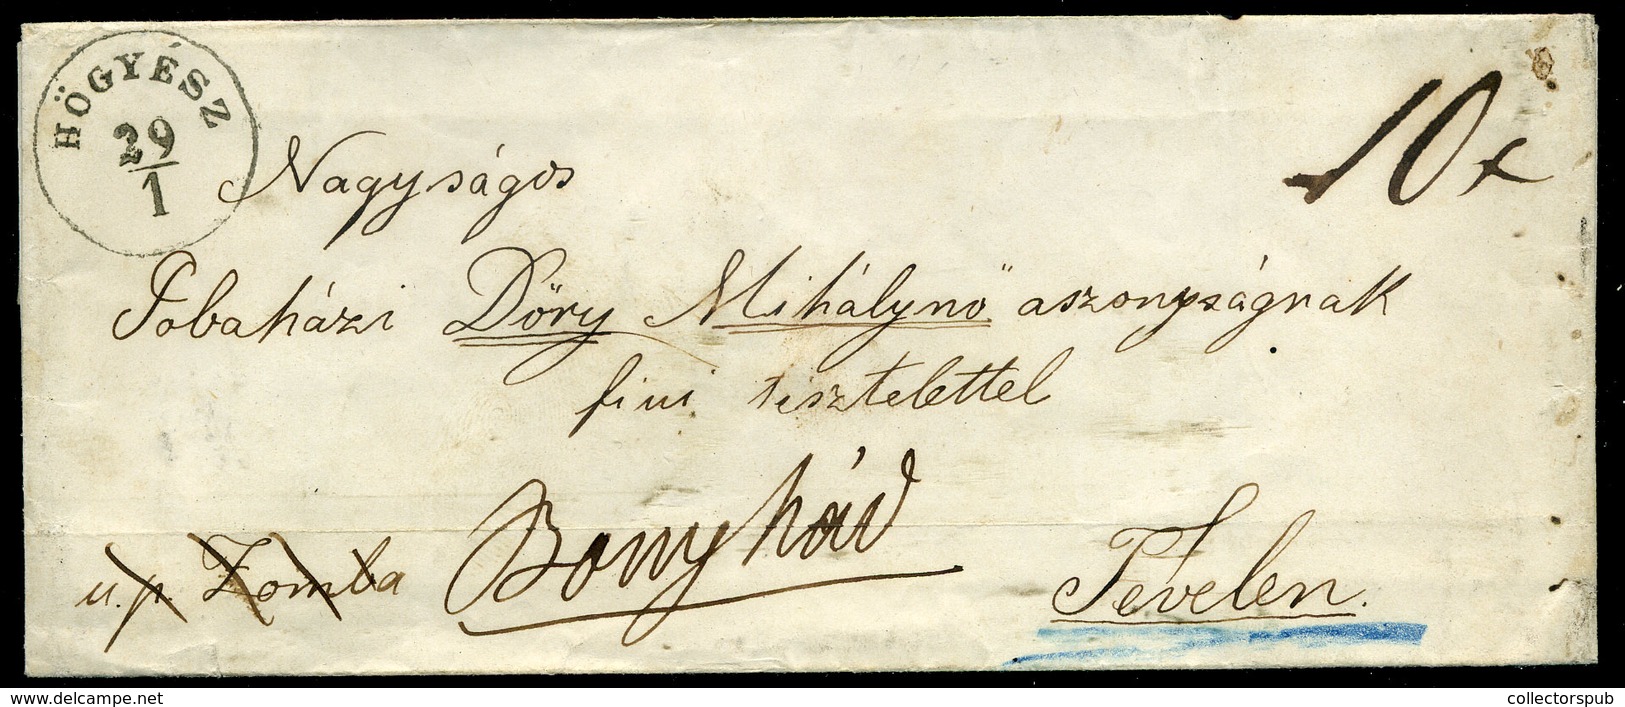 HÖGYÉSZ
29
1
10 x
Nagyságos
Jobaházi Dőry Mihálynő aszonyságnak
fiui tisztelettel
u.p. Zomba Bonyhád Tevelen.
www.delcampe.net
collectorspub